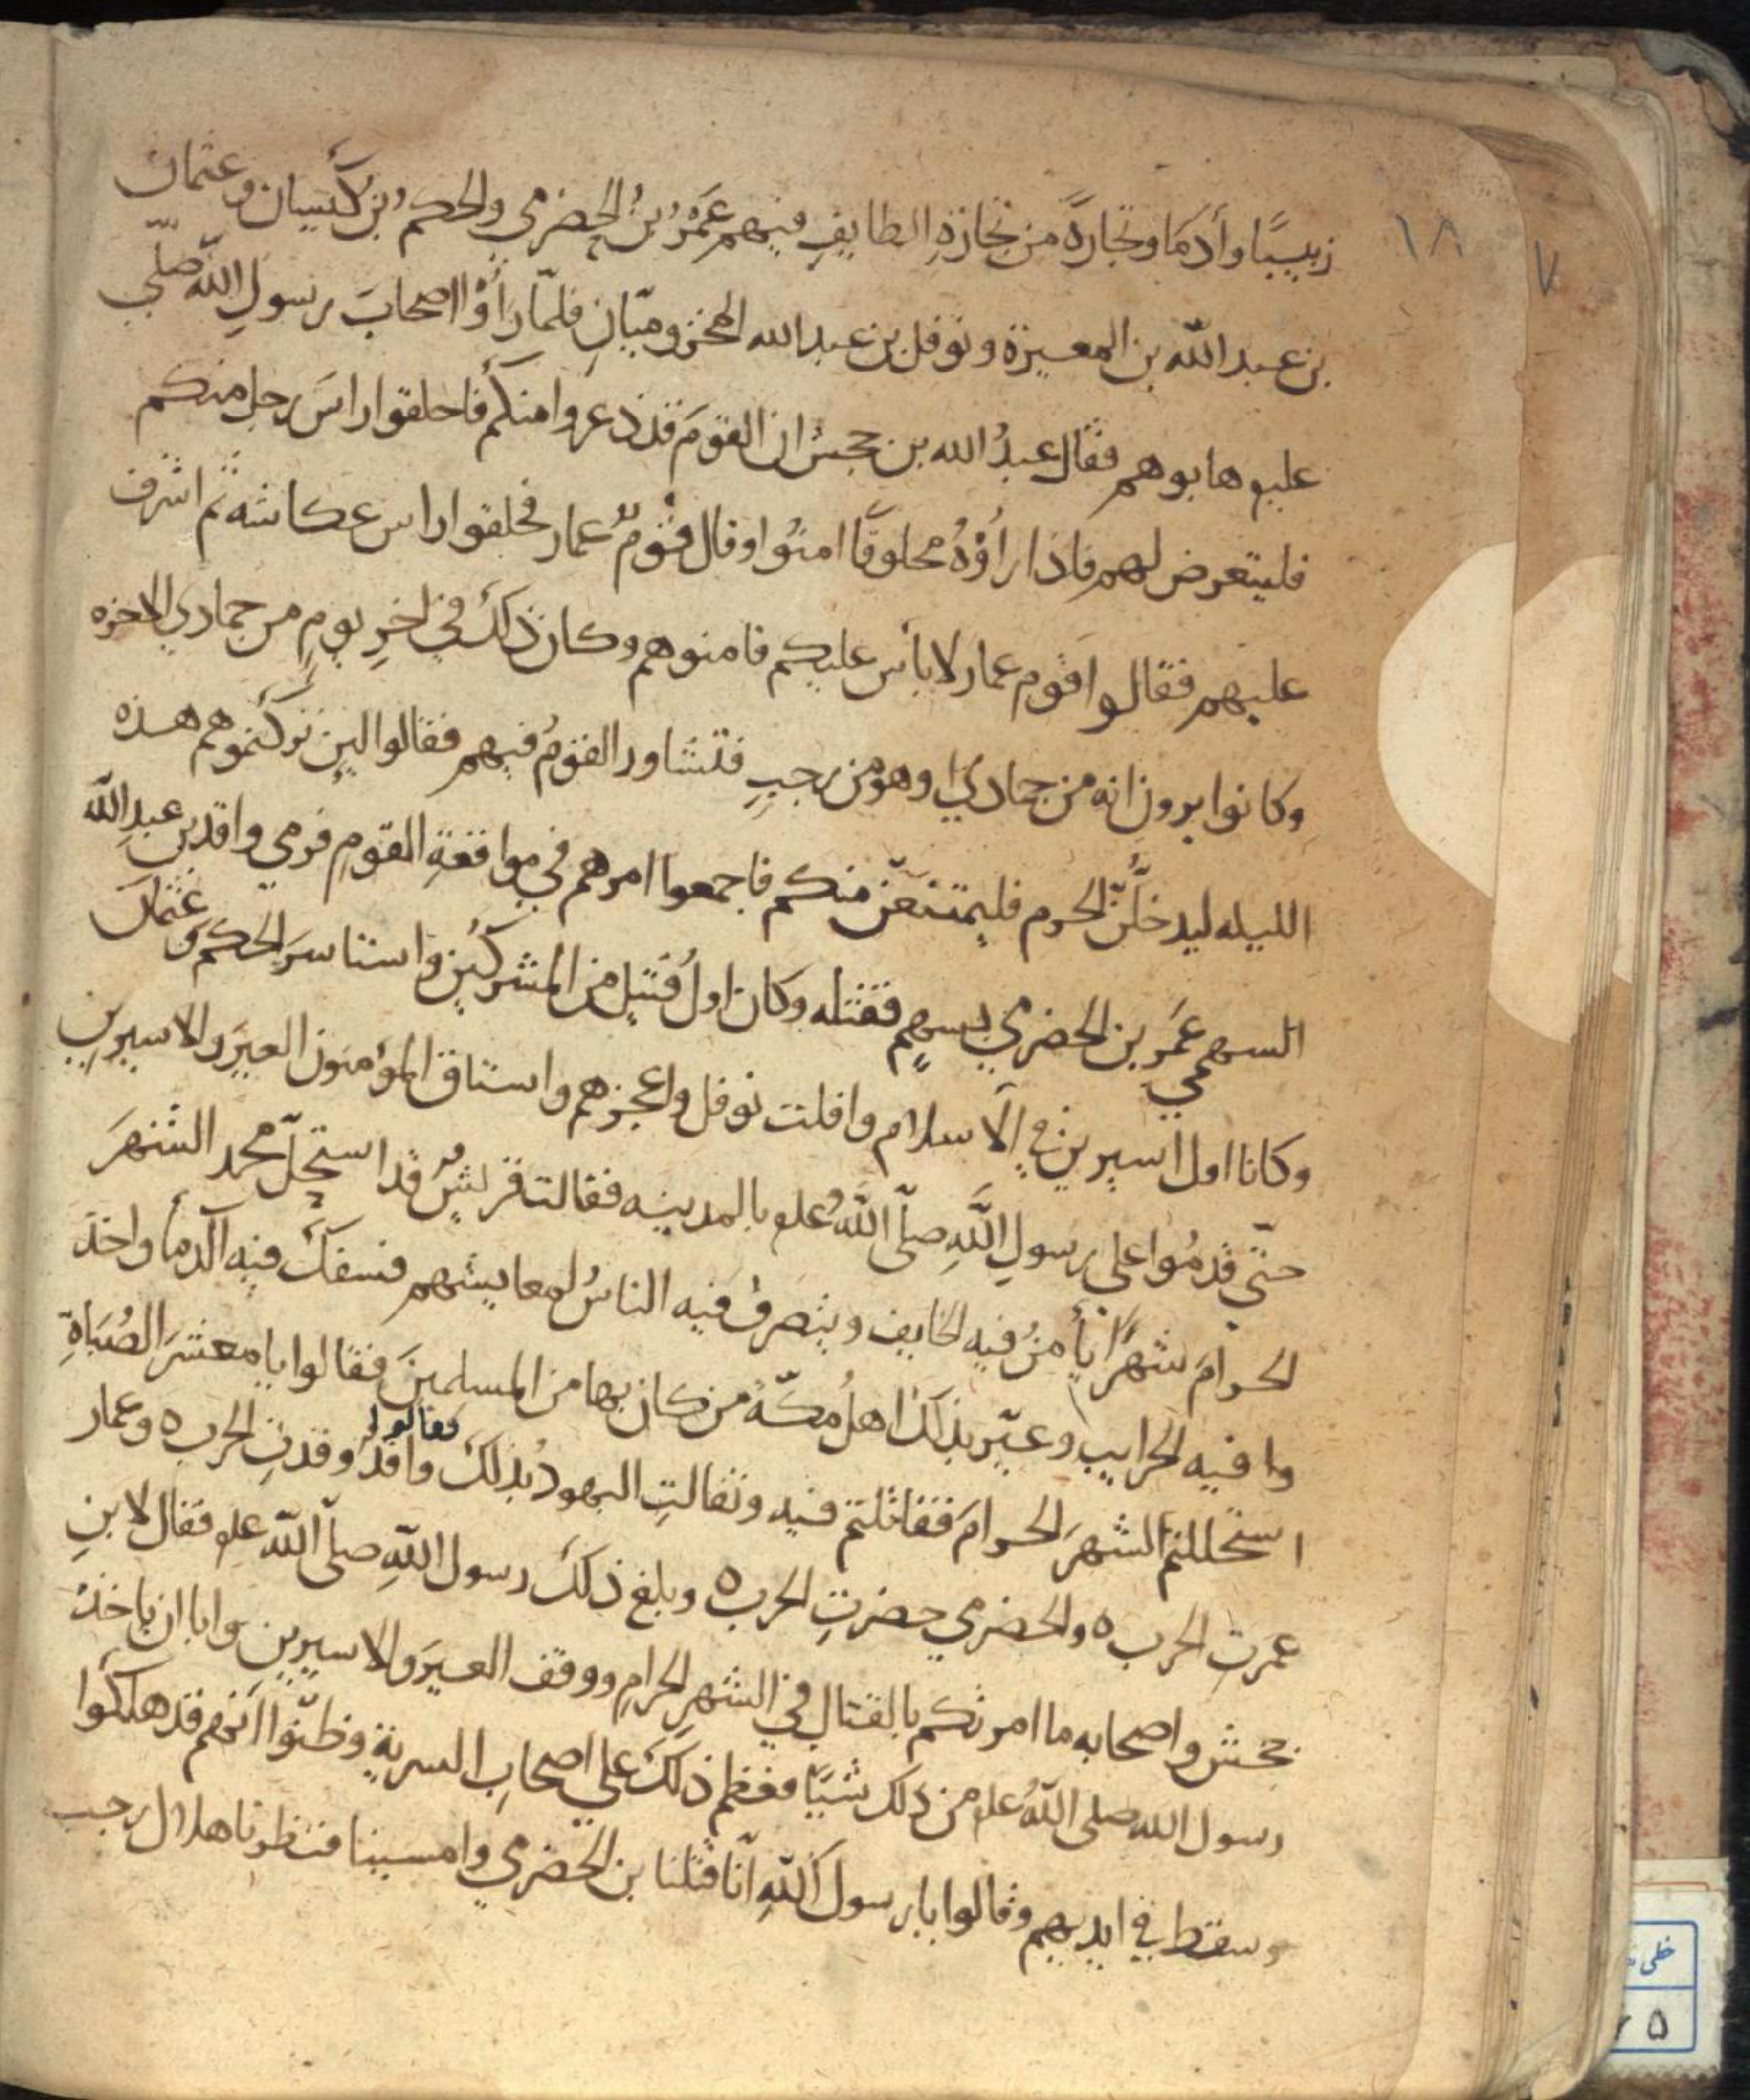 ١٨ ٧
زبيبًا وأدمًا وتجارةً من تجارةِ الطايفِ فيهم عَمْرُ بنُ الحضرمي والحكمُ بن كَيسان وعثمان
بن عبد الله بن المغيرة ونوفل بن عبد الله المخزوميّانِ فلمّا رأوْا اصحابَ رسولِ الله صلّي
عليو هابوهم فقال عبدُ الله بن جحش ان القومَ قد ذعروا منكم فاحلقوا راسَ رجل منكم
فليتعرض لهم فاذا رأوْهُ محلوقًا امنُوا وقال قومٌ عمار فحلقوا راس عكاشه ثم اشرف
عليهم فقالوا قوم عمار لا بأس عليكم فامنوهم وكان ذلك في اخرِ يومٍ من جمادي الاخره
وكانوا يرون انه من جمادي او هو من رجبٍ فتشاور القومُ فيهم فقالوا لين تركتموهم هذه
الليله ليدخلُنّ الحرم فليمتنعنّ منكم فاجمعوا امرهم في مواقعةِ القومِ فرمي واقد بن عبدِ الله
السهمي عَمَر بن الحضرمي بسهمٍ فقتله وكان اول قتيل من المشركين واستاسرَ الحكم وعثمان
وكانا اول اسيرين في الاسلام وافلت نوفل واعجزهم واستاق المؤمنون العيرَ والاسيرينِ
حتّي قدمُوا علي رسولِ اللهِ صلّي اللهُ علو بالمدينه فقالت قريشٌ قد استحلّ محمد الشهرَ
الحرامَ شهرًا يأمنُ فيه الخايف وينصرفُ فيه الناسُ لمعايشهم فسفكَ فيه الدمأ واخذ
وا فيه الحرايب وعيّر بذلك اهلُ مكّة من كان بها من المسلمينَ فقالوا يا معشرَ الصُبَاةِ
استحللتم الشهرَ الحرامَ فقاتلتم فيه وتفالتِ اليهودُ بذلك فقالوا واقدٌ وقدتِ الحرب ٥ وعمار
عمرت الحرب ٥ والحضرمي حضرتِ الحرب ٥ وبلغ ذلك رسول اللهِ صلّي اللهُ علو فقال لابنِ
جحش واصحابه ما امرتكم بالقتال في الشهرِ الحرامِ ووقف العيرَ والاسيرين وابا ان ياخذ
رسول الله صلي اللهُ علو من ذلك شيًا فعظم ذلك علي اصحابِ السريةِ وظنّوا أنهم قد هلكوا
وسقط في ايديهم وقالوا يا رسول اللهِ انّا قتلنا بن الحضرمي وامسينا فنظرنا هلال رجب
خلی
۵